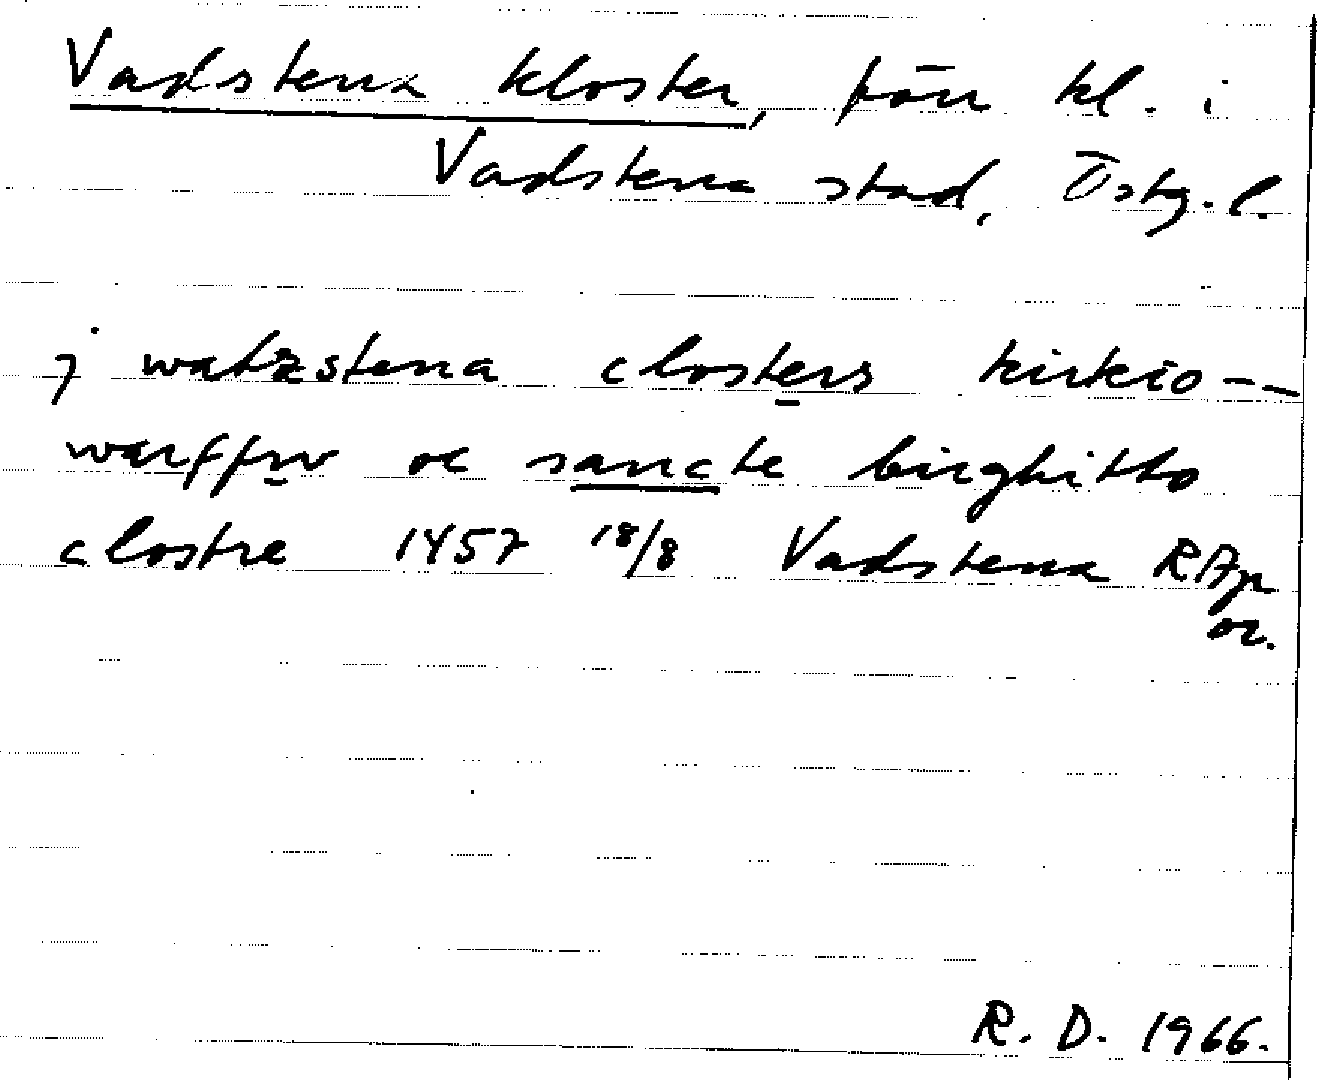 Vadstena kloster, förr kl. i
Vadstena stad, Östg. l.
j watzstena closters kirkio--
warffw oc sancte birghitto
clostre 1457 18/8 Vadstena RAp
or.
R. D. 1966.